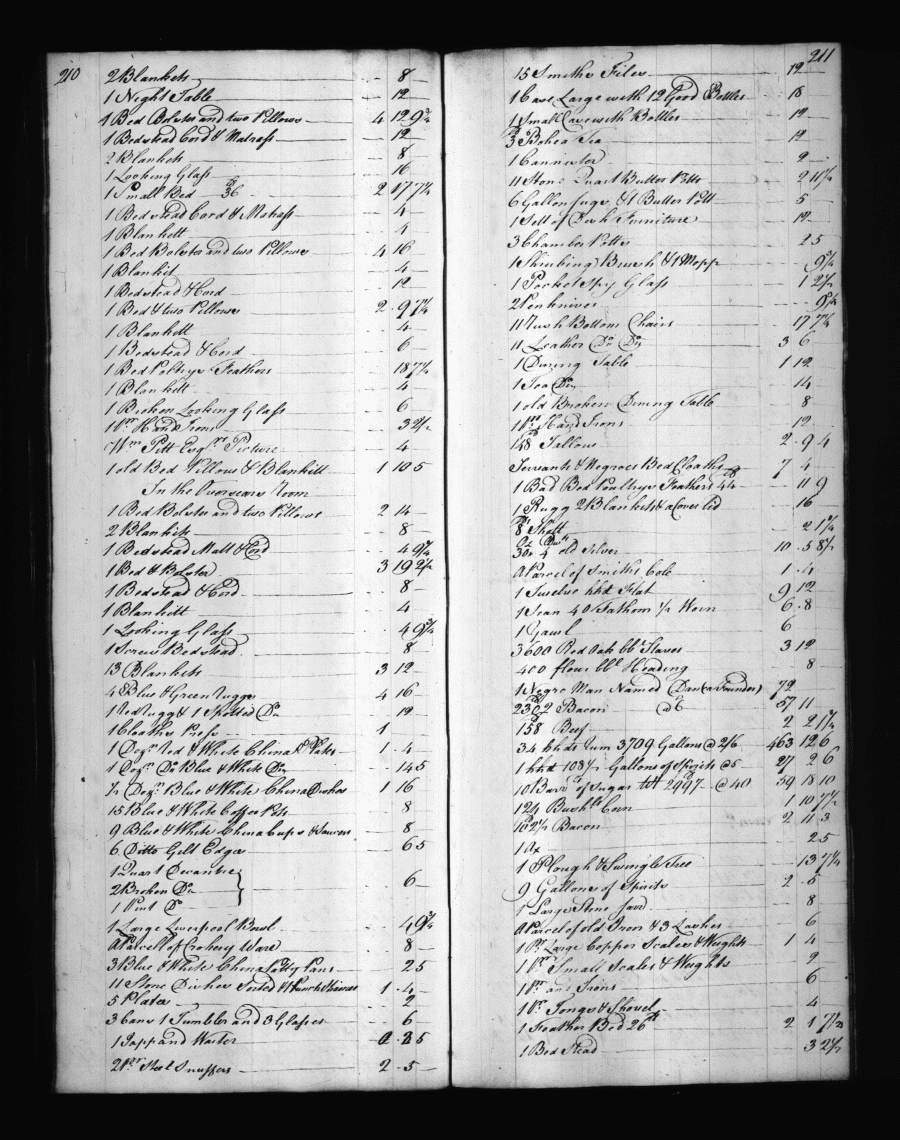 210
2 Blankets - 8 -
1 Night Table - 12
1 Bed Bolster and two Pillows - 4 12 9¾
1 Bedstead Cord & Matrass - 12
2 Blankets - 8
1 Looking Glass - 16
1 Small Bed 36 - 2 17 7¼
1 Bedstead Cord & Matrass - 4 -
1 Blankett - 4
1 Bed Bolster and two Pillows - 4 16
1 Blankit - 4 -
1 Bedstead & Cord - 12
1 Bed & two Pillows - 2 . 9 7¼
1 Blankett - 4 -
1 Bedstead & Cord - 6 -
1 Bed Poltrys Feathers - 18 7½
1 Blankett - 4
1 Broken Looking Glass - 6
1 Pr. Hand Irons - 3 2½
Wm Pitt Esqrs Picture - 4
1 old Bed Pillows & Blankett - 1 10 5
In the Overseers Room
1 Bed Bolster and two Pillows - 2 14 -
2 Blankits - 8 -
1 Bedstead Matt & Cord - 4 9¾
1 Bed & Bolster - 3 19 2½
1 Bedstead & Cord - 8 -
1 Blankett - 4
1 Looking Glass - 4 9¾
1 Screw Bedstead - 8
13 Blankets - 3 12 -
4 Blue & Green Ruggs - 4 16
1 Red Rugg & 1 Spotted Do - 12
1 Cloaths Press - 1
1 Dozn Red & White China Plates - 1 . 4
1 Dozn Do Blue & White Do - 14 5
½ Dozn Blue & White China Dishes - 1 16
15 Blue & White Coffee Potts - 8
9 Blue & White China Cups & Saucers - 8
6 Ditto Gilt Edges - 6 5
1 Quart Decanter
2 Broken Do - 6 -
1 Pint Do
1 Large Liverpool Bowl - 4 9¾
A Parcell of Crokery Ware - 8 -
3 Blue & White China Patty Pans - 2 5
11 Stone Dishes Sorted - 1 . 4 -
5 Plates - 2
3 Cans 1 Tumbler and 3 Glasses - 6
1 and Waiter - 2 5
2 Pr Steel Snuffers - 2 . 5 -
211
15 Smiths Files - 12
1 Case Large with 12 Good Bottles - 18
1 Small Case with Bottles - 12
3 Bohea Tea - 12
1 Cannester - 2
11 Stone Quart Butter Potts - 2 11½
6 Gallon Jugs & 1 Butter Pott - 5
1 Sett of Desk Furniture - 12
3 Chamber Potts - 2 5
1 Shrubing Brush & 1 Mopp - 9¾
1 Pocket Spy Glass - 1 2½
2 Penknives - 9¾
11 Rush Bottom Chairs - 17 7¼
11 Leather Do Do - 3 6
1 Dining Table - 1 12
1 Tea Do - 14
1 old Broken Dining Table - 8
1 Pr Hand Irons - 12
148 Tallow - 2 . 9 4
Servants & Negroes Bed Cloaths - 7 4
1 Bad Bed Poultrys Feathers 44 - 11 9
1 Rugg 2 Blankets & a Coverlid - 16
8 Shott - 2 1¾
Oz Dwt
30 . 4 old Silver - 10 . 5 8½
A Parcel of Smiths Cole - 1 . 4
1 Twelve hhd Flat - 9 12
1 Sean 40 Fathom ½ Worn - 6 . 8
1 Yawl - 6
3600 Red Oak bbl Staves - 3 12
400 flour bbl Heading - 8
1 Negro Man Named Dan (a Founder) - 72
2302 Bacon @ 6 - 57 11
158 Beef - 2 2 1¾
34 hhds Rum 3709 Gallons @ 2/6 - 463 12 6
1 hhd 108½ Gallons of Spirits @ 5 - 27 2 6
10 Barrs of Sugar Wt 2997 @ 40 - 59 18 10
124 Bushls Corn - 1 10 7½
102½ Bacon - 2 11 3
1 Ax - 2 5
1 Plough & Swingle Tree - 13 7¼
9 Gallons of Spirits - 2 . 5
1 Large Stone Jarr - 8
A Parcel of old Iron & 3 - 6
1 Pr Large Copper Scales & Weights - 1 4
1 Pr Small Scales & Weights - 2
1 Pr and Irons - 6
1 Pr Tongs & Shovel - 4
1 Feather Bed 26 - 2 1 7½
1 Bed Stead - 3 2½